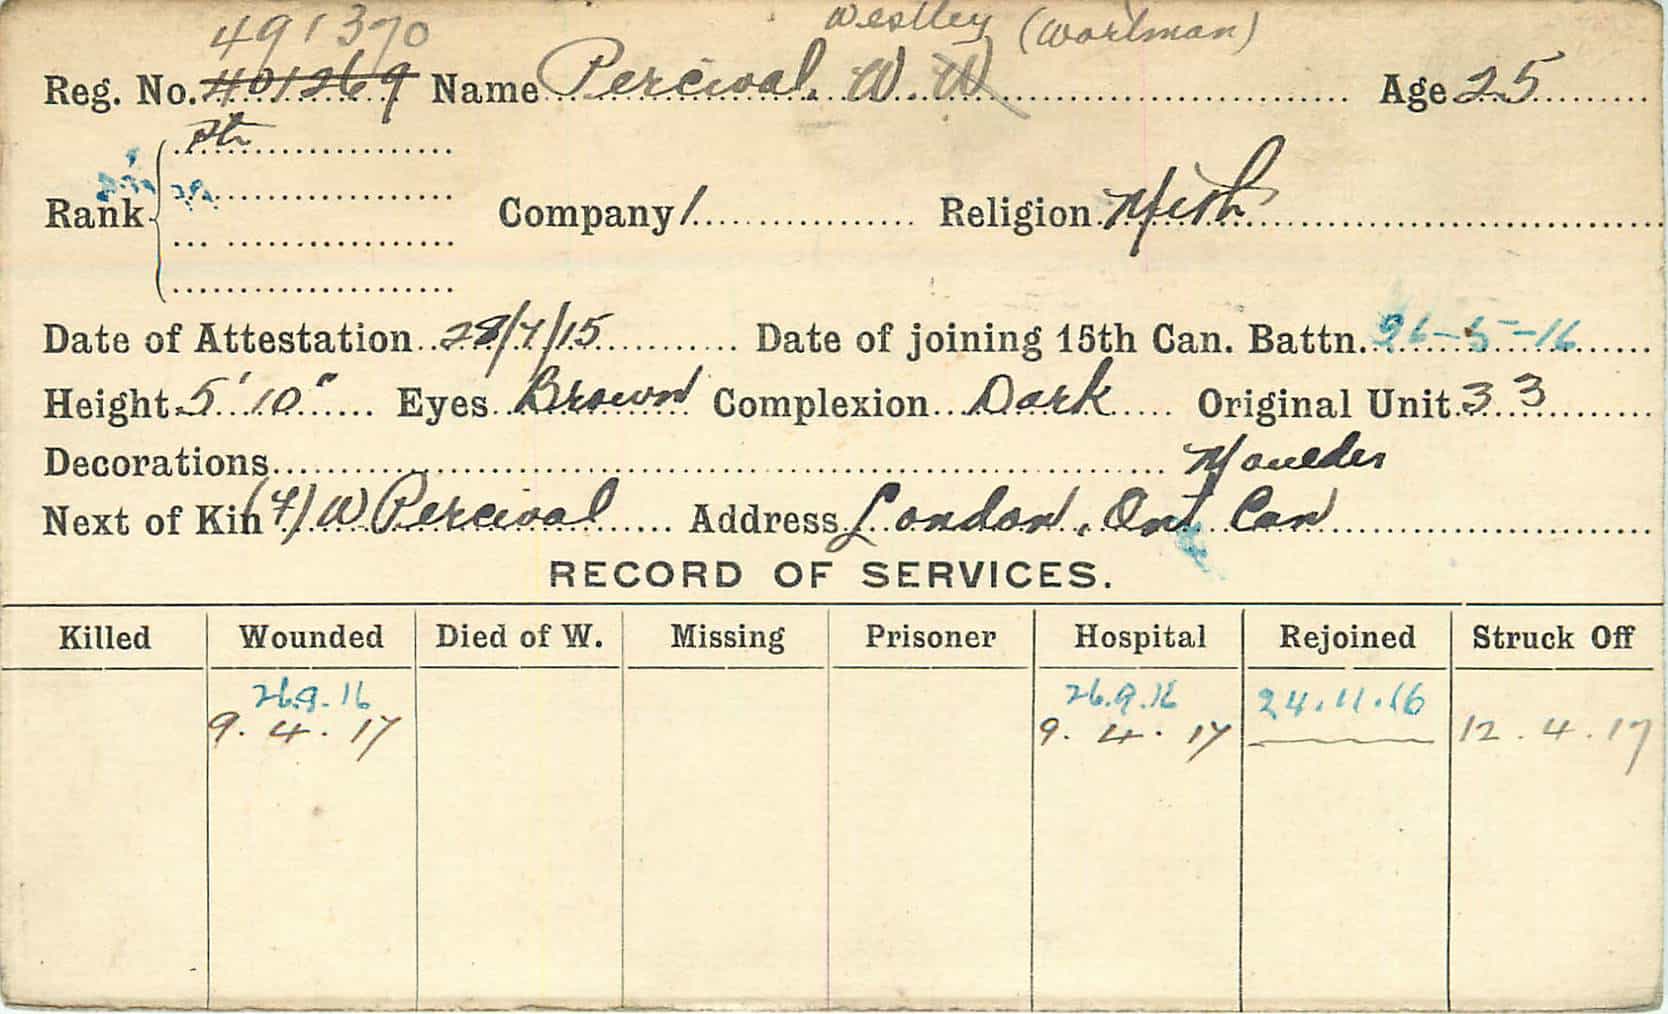 491370 Westley (Workman)
Reg. No. 401269 Name Percival. W. W Age 25
Pte
Rank Company 1 Religion Meth
Date of Attestation 28/7/15 Date of joining 15th Can. Battn. 26-5-16
Height 5' 10" Eyes Brown Complexion Dark Original Unit 33
Decorations Moulder
Next of Kin (F) W Percival Address London, Ont Can
RECORD OF SERVICES.
Killed Wounded Died of W. Missing Prisoner Hospital Rejoined Struck Off
26.9.16 26.9.16 24.11.16
9.4.17 9.4.17 12.4.17